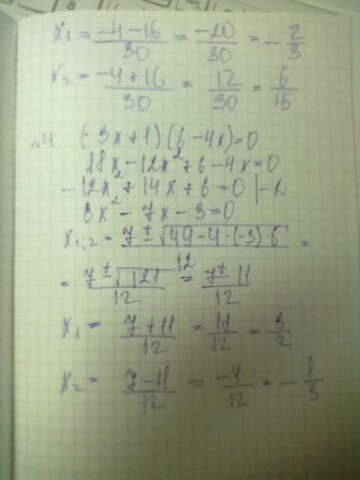 x₁ = (-4-16)/30 = -20/30 = -2/3
x₂ = (-4+16)/30 = 12/30 = 6/15
№4 (-3x+1)(6-4x)=0
18x-12x²+6-4x=0
-12x²+14x+6=0 |-2
6x²-7x-3=0
x₁,₂ = (7±√(49-4·(-3)6))/12 =
= (7±√121)/12 = (7±11)/12
x₁ = (7+11)/12 = 11/12 = 3/2
x₂ = (7-11)/12 = -4/12 = -1/3